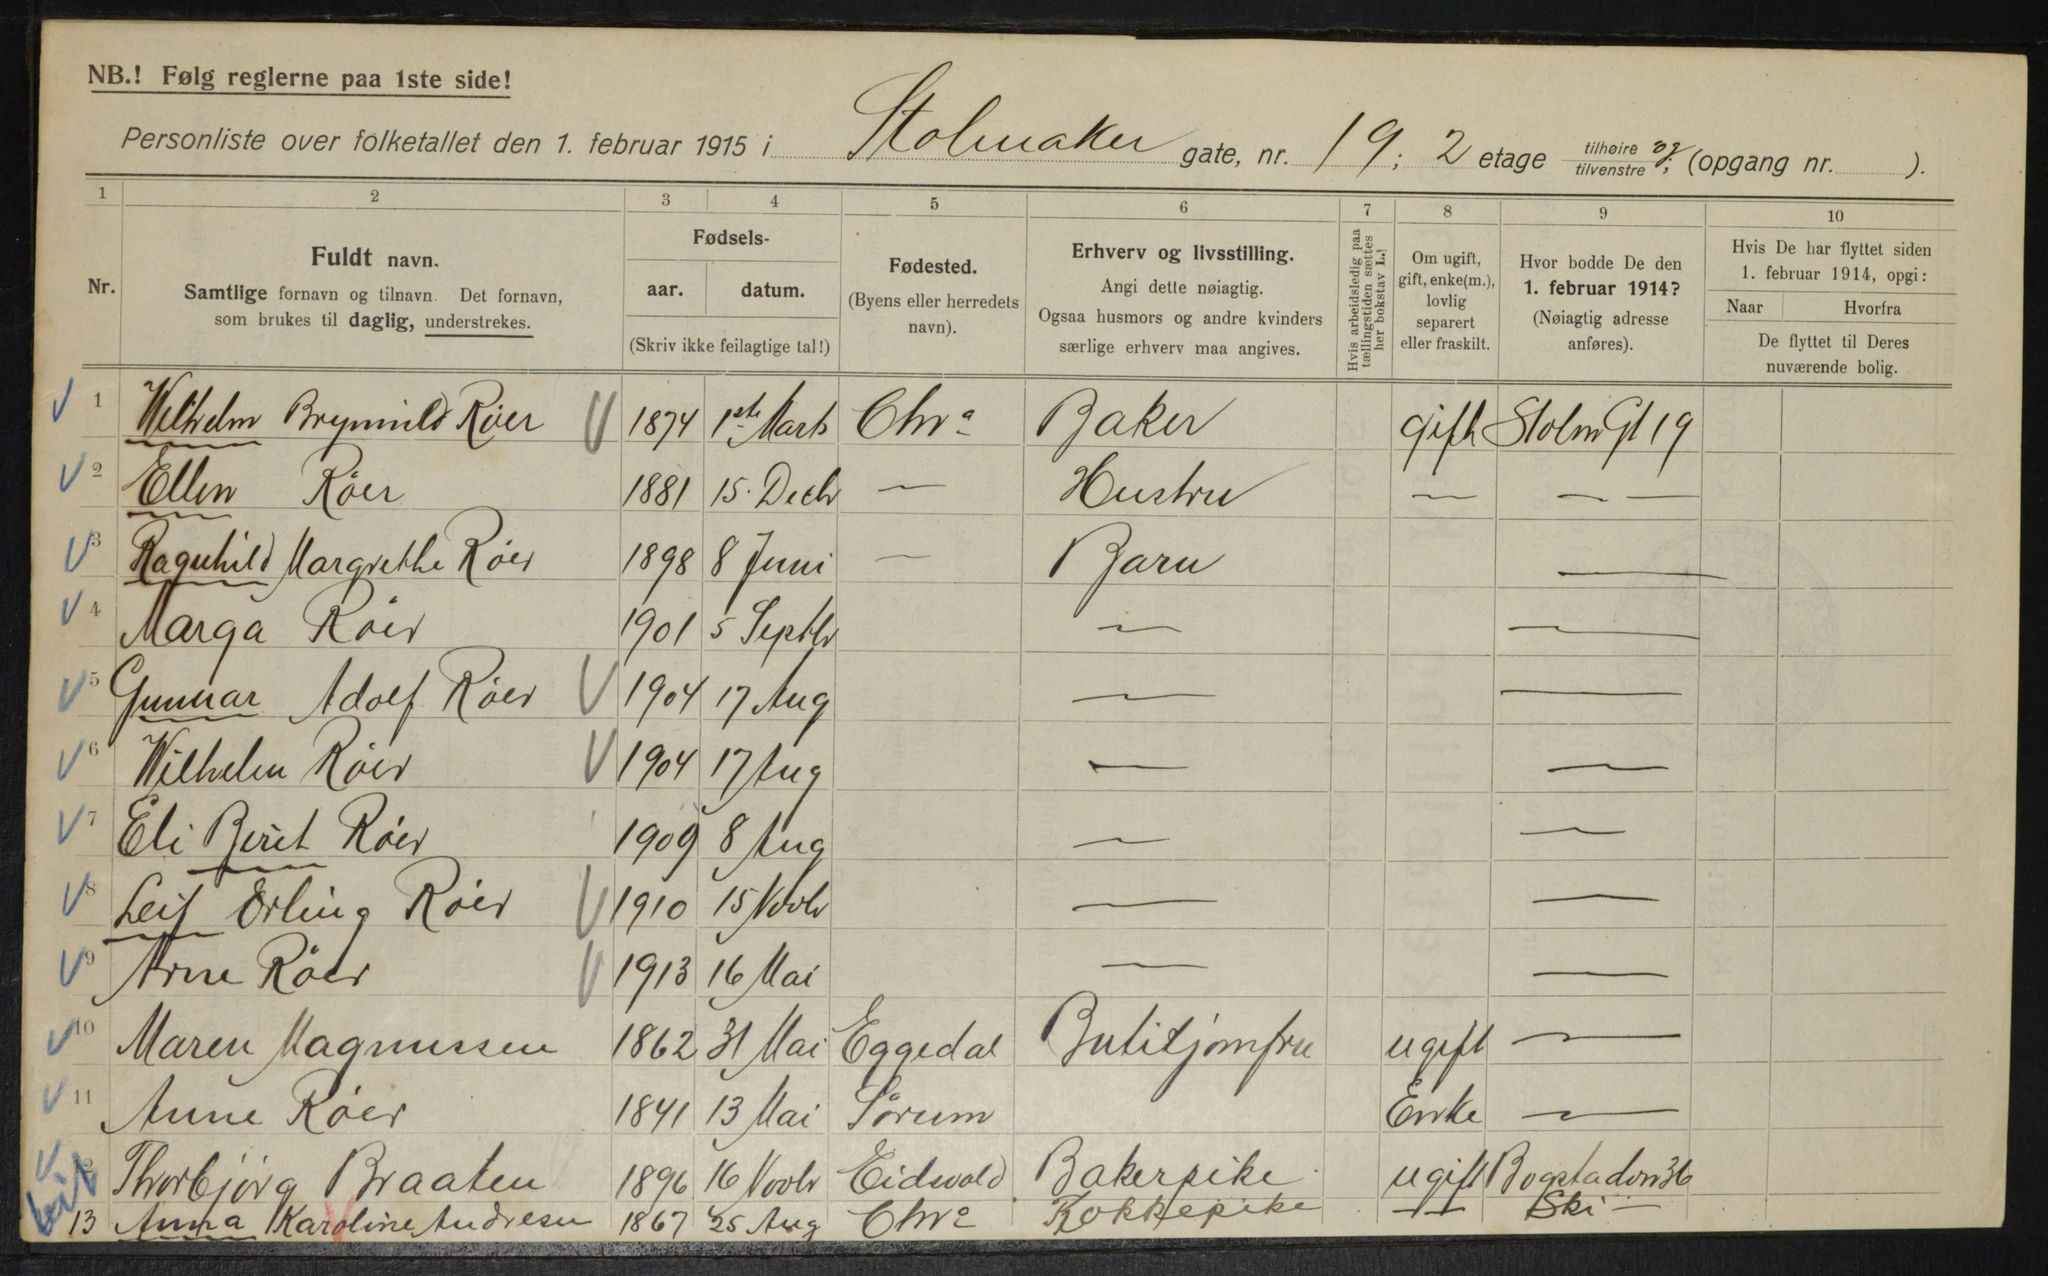 NB.! Følg reglerne paa 1ste side!
Personliste over folketallet den 1. februar 1915 i Stolmaker gate, nr. 19; 2 etage tilhøire tilvenstre og; (opgang nr. ).
1 2 3 4 5 6 7 8 9 10
Nr.
Fuldt navn.
Samtlige fornavn og tilnavn. Det fornavn,
som brukes til daglig, understrekes.
Fødsels-
aar. datum.
(Skriv ikke feilagtige tal!)
Fødested.
(Byens eller herredets
navn).
Erhverv og livsstilling.
Angi dette nøiagtig.
Ogsaa husmors og andre kvinders
særlige erhverv maa angives.
Hvis arbeidsledig paa
tællingstiden sættes
her bokstav L.!
Om ugift,
gift, enke(m.),
lovlig
separert
eller fraskilt.
Hvor bodde De den
1. februar 1914?
(Nøiagtig adresse
anføres).
Hvis De har flyttet siden
1. februar 1914, opgi:
Naar Hvorfra
De flyttet til Deres
nuværende bolig.
1 Wilhelm Röer 1874 1ste Marts Chra Baker gift Stolm Gt 19
2 Ellen Röer 1881 15. Decbr — Hustru — — —
3 Ragnhild Margrethe Röer 1898 8 Juni — Barn —
4 Marga Röer 1901 5 Septbr — —
5 Gunnar Adolf Röer 1904 17 Aug — —
6 Wilhelm Röer 1904 17 Aug — —
7 Eli Berit Röer 1909 8 Aug — —
8 Leif Erling Röer 1910 15 Novbr — —
9 Arne Röer 1913 16 Mai — —
10 Maren Magnussen 1862 31 Mai Eggedal Butikjomfru ugift —
11 Anne Röer 1841 13 Mai Sörum Enke —
12 Thorbjörg Braaten 1896 16 Novbr Eidsvold Bakerpike ugift Bogstadvn 36
13 Anna Karoline Andresen 1867 25 Aug Chra Kokkepike — — Ski —